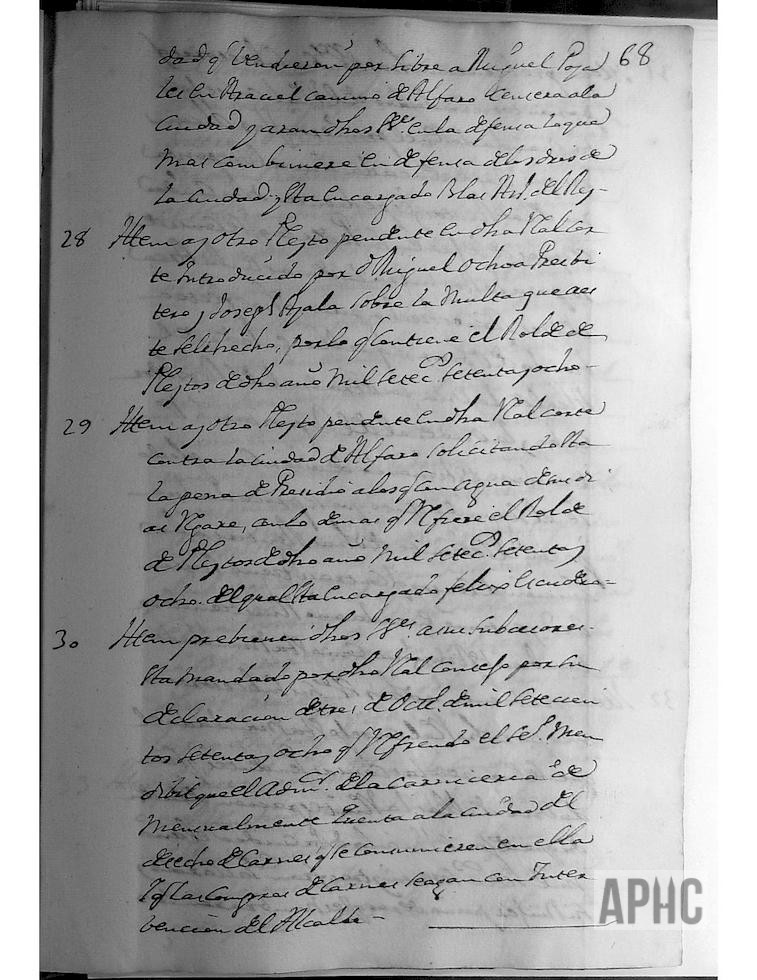 dad q̃ Vendieron por libre a Miguel Poza 68
les en Araciel camino de Alfaro cercera a la
Ciudad y aran dhos SSres en la defensa lo que
mas combiniere en defensa de los dros de
la Ciudad y Sta encargado Blas Ant. del Rey-
28 Ittem ay Otro Pleyto pendente en dha Real Cor
te Introducido por Dn Miguel Ochoa Presbi
tero, y Joseph Ayala Sobre la Multa que a es
te Sele hecho, por lo q̃ Contiene el Rolde de
Pleytos de dho año Mil Setecs. Setenta y ocho-
29 Ittem ay Otro Pleyto pendente en dha Real Corte
contra la Ciudad de Alfaro Solicitando Sta
la pena de Presidio a los q̃ con agua de
Regare, con lo demas q̃ Refiere el Rolde
de Pleytos de dho año Mil Setecs. Setenta y
ocho. del qual Sta encargado felix Escudero=
30 Ittem prebienen dhos SSres. a sus Subcesores.
Sta Mandado por dho Real Consejo por Su
declaracion de tres, de Octe. de mil Setecien
tos Setenta y ocho q̃ Refrendo el Sec. Men
dibil que el Admr. de la Carniceria de
Mensualmente Quenta a la Ciudad del
derecho de Carnes q̃ se Consumieren en ella
Y q̃ las Compras de Carnes seagan con Inter
bencion del Alcalde -
APHC